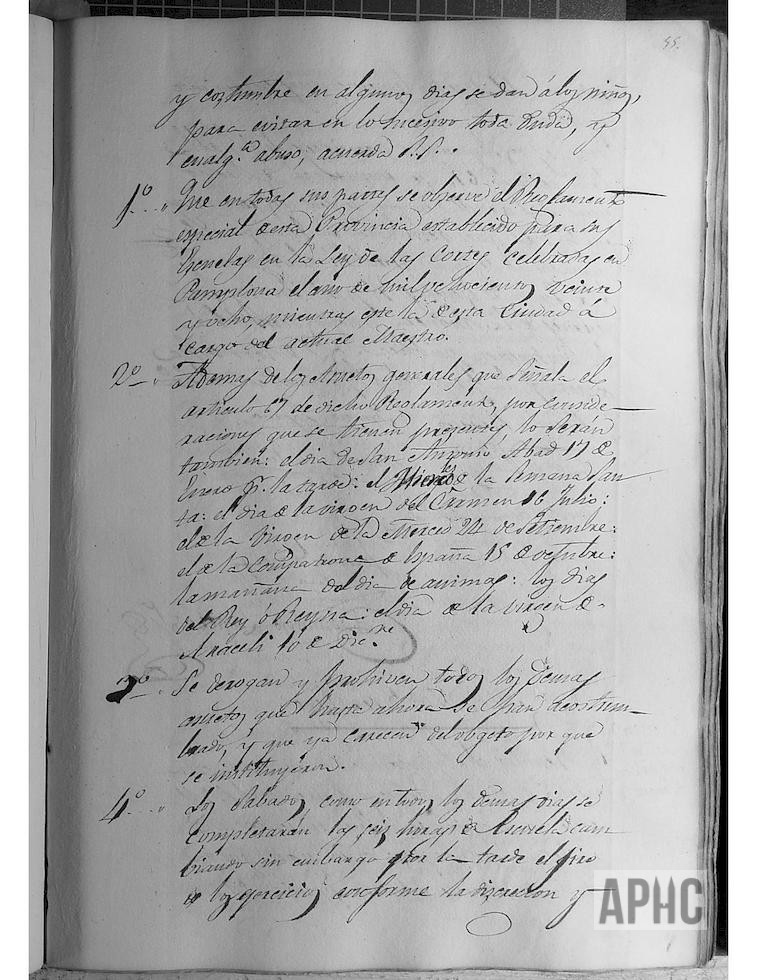 55.
y costumbre en algunos dias se dan á los niños,
para evitar en lo sucesivo toda duda, y
cualq.r abuso, acuerda S.S.
1º.. Que en todas sus partes se observe el Reglamento
especial de esta Provincia establecido para sus
Escuelas en la Ley de las Cortes celebradas en
Pamplona el año de mil ochocientos veinte
y ocho, mientras esté la de esta Ciudad á
cargo del actual Maestro.
2º. Ademas de los Asuetos generales que señala el
articulo 67 de dicho Reglamento, por conside-
raciones que se tienen presentes, lo serán
tambien: el dia de San Antonio Abad 17 de
Enero p.r la tarde: el Miercoles de la Semana San-
ta: el dia de la virgen del Carmen 16 Julio:
el de la Virgen de la Merced 24 de Setiembre:
el de la Compatrona de España 15 de octubre:
la mañana del dia de animas: los dias
del Rey ó Reyna: el dia de la virgen de
Araceli 10 de Dic.re
3º. Se derogan y prohiven todos los demas
asuetos que hasta ahora se han acostum-
brado, y que ya carecen del obgeto por que
se instituyeron.
4º.. Los Sabados, como en todos los demas dias se
completarán las seis horas de Escuela cam
biando sin embargo por la tarde el giro
de los ejercicios conforme la discrecion y
APHC